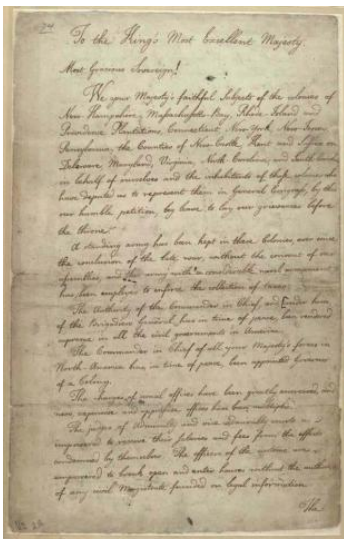 24
To the King's Most Excellent Majesty.
Most Gracious Sovereign!
We your Majesty's faithful Subjects of the colonies of
New Hampshire, Massachusetts Bay, Rhode Island and
Providence Plantations, Connecticut, New York, New Jersey,
Pennsylvania, the Counties of New Castle, Kent and Sussex on
Delaware, Maryland, Virginia, North Carolina, and South Carolina
in behalf of ourselves and the inhabitants of these colonies who
have deputed us to represent them in General Congress, by this
our humble petition, beg leave to lay our grievances before
the throne.
A standing army has been kept in these Colonies, ever since
the conclusion of the late war, without the consent of our
assemblies; and this army with a considerable naval armament
has been employed to enforce the collection of taxes.
The Authority of the Commander in Chief, and under him
of the Brigadiers General, has in time of peace, been rendered
supreme in all the civil governments in America.
The Commander in Chief of all your Majesty's forces in
North America has, in time of peace, been appointed Governor
of a Colony.
The charges of usual offices have been greatly encreased, and
new, expensive and oppressive offices have been multiplied.
The judges of Admiralty and vice admiralty courts are
impowered to receive their salaries and fees from the effects
condemned by themselves. The officers of the customs are
empowered to break open and enter houses without the authority
of any civil Magistrate founded on legal information.
The